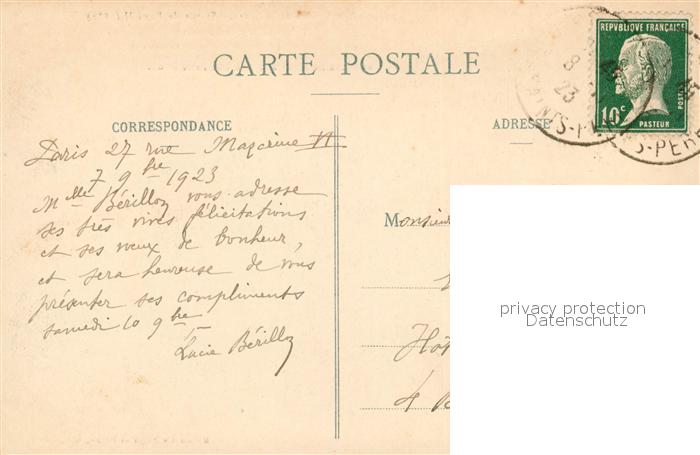 CARTE POSTALE
CORRESPONDANCE
Paris 27 rue Mazarine VI
7 9bre 1923
Mlle Bérillon vous adresse
ses très vives félicitations
et ses vœux de bonheur,
et sera heureuse de vous
présenter ses compliments
samedi 10 9bre
Lucie Bérillon
ADRESSE
REPVBLIQUE FRANÇAISE
10c
POSTES
PASTEUR
8
23
Monsieur
Hôt
4
privacy protection
Datenschutz